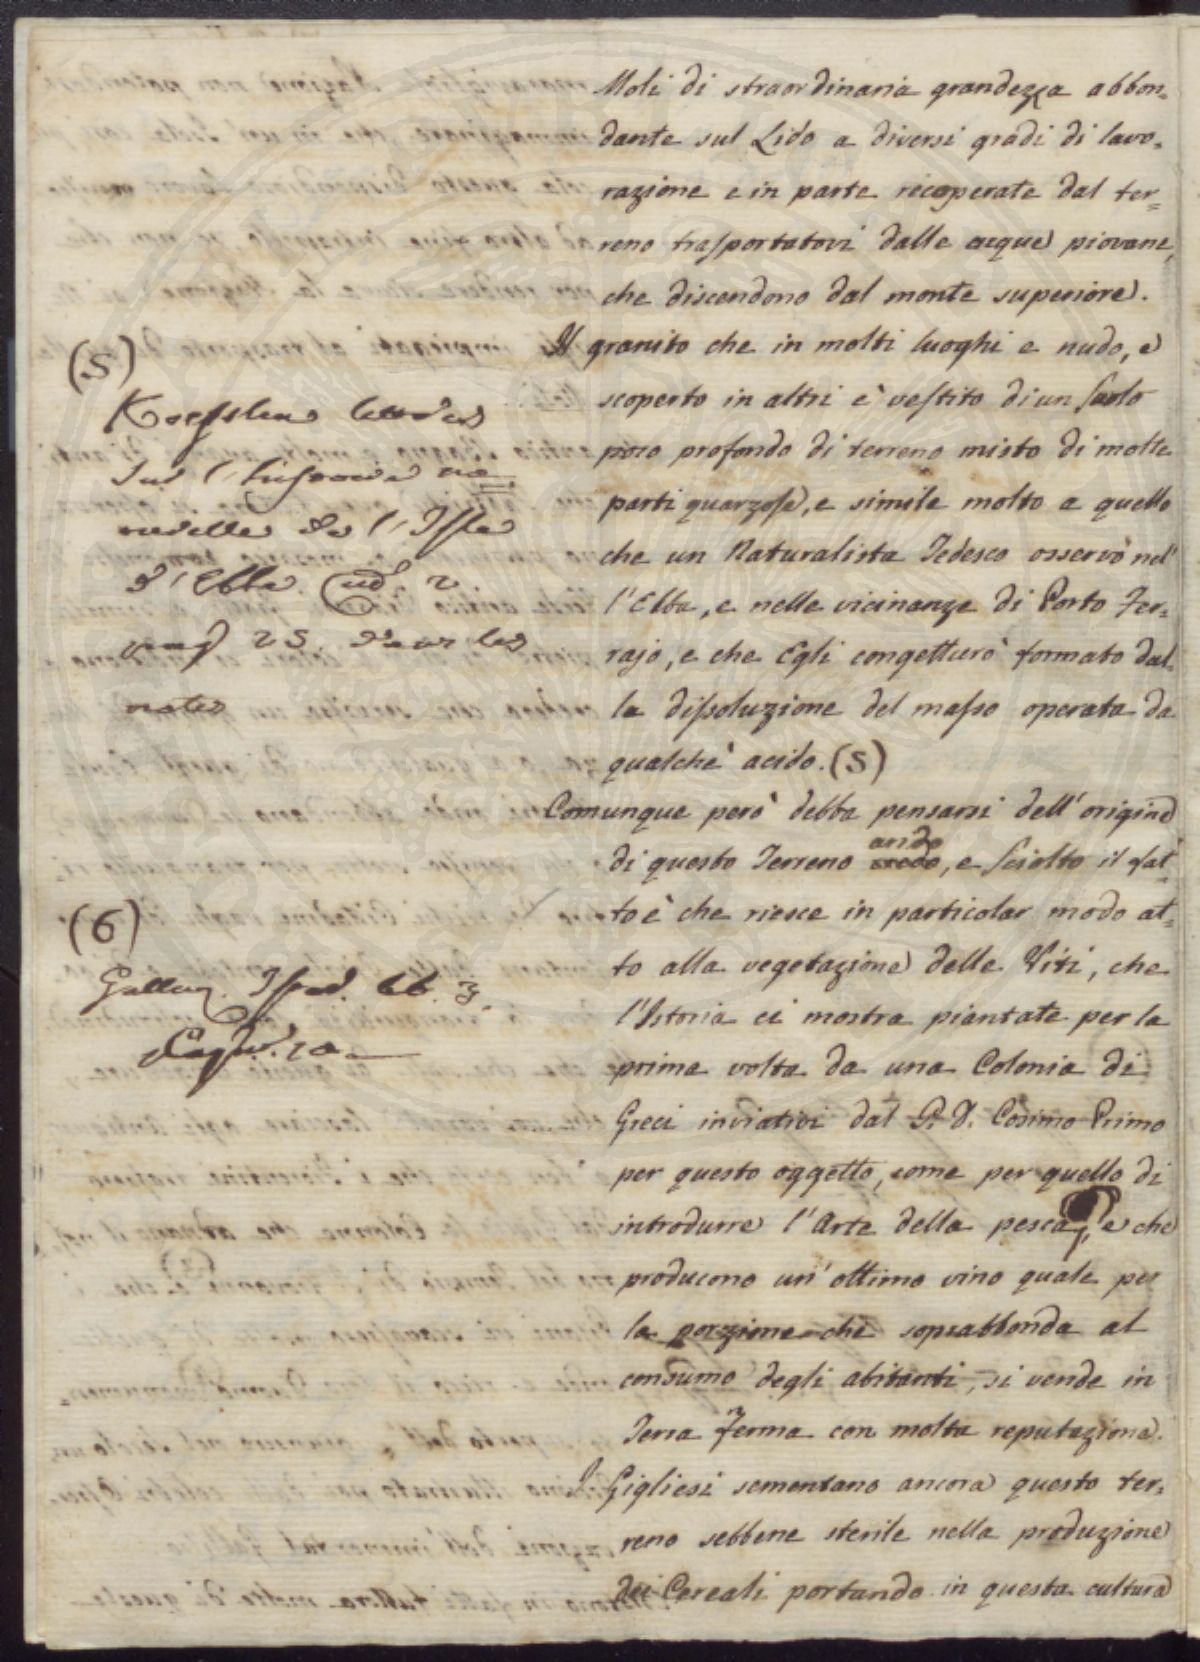 Moli di straordinaria grandezza abbon=
dante sul Lido a diversi gradi di lavo=
razione e in parte ricoperate dal ter=
reno trasportatovi dalle acque piovane,
che discendono dal monte superiore.
Il granito che in molti luoghi e nudo, e
scoperto in altri è vestito di un suolo
poco profondo di terreno misto di molte
parti quarzose, e simile molto a quello
che un Naturalista Tedesco osservò nel'
l'Elba, e nelle vicinanze di Porto Fer=
rajo, e che Egli congetturò formato dal=
la dissoluzione del masso operata da
qualche acido. (5)
Comunque però debba pensarsi dell'origine
di questo Terreno arido, e sciolto il fat=
to è che riesce in particolar modo at=
to alla vegetazione delle Viti, che
l'Istoria ci mostra piantate per la
prima volta da una Colonia di
Greci inviativi dal G. D. Cosimo Primo
per questo oggetto, come per quello di
introdurre l'Arte della pesca, e che
producono un'ottimo vino quale per
la porzione che soprabbonda al
consumo degli abitanti, si vende in
Terra ferma con molta reputazione.
I Gigliesi sementano ancora questo ter=
reno sebbene sterile nella produzione
dei Cereali portando in questa cultura
(5)
Koestlin lettres
sur l'histoire na=
turelle de l'Isle
d'Elbe
pag 25. dans les
notes
(6)
Galluz. Istor. lib. 3.
Cap. 10